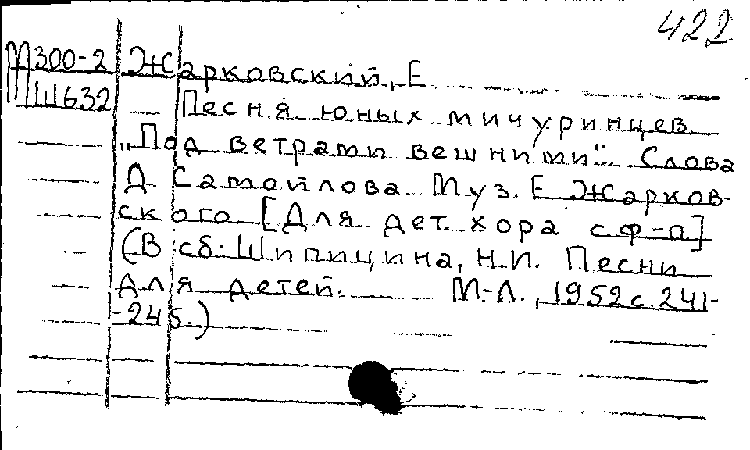 422
М300-2 Жарковский, Е
Ш632 Песня юных мичуринцев
„Под ветрами вешними". Слова
Д Самойлова. Муз. Е Жарков-
ского [Для дет. хора с ф-п]
(В сб: Шипицина, Н.И. Песни
для детей. М-Л., 1952 с 241-
-245.)